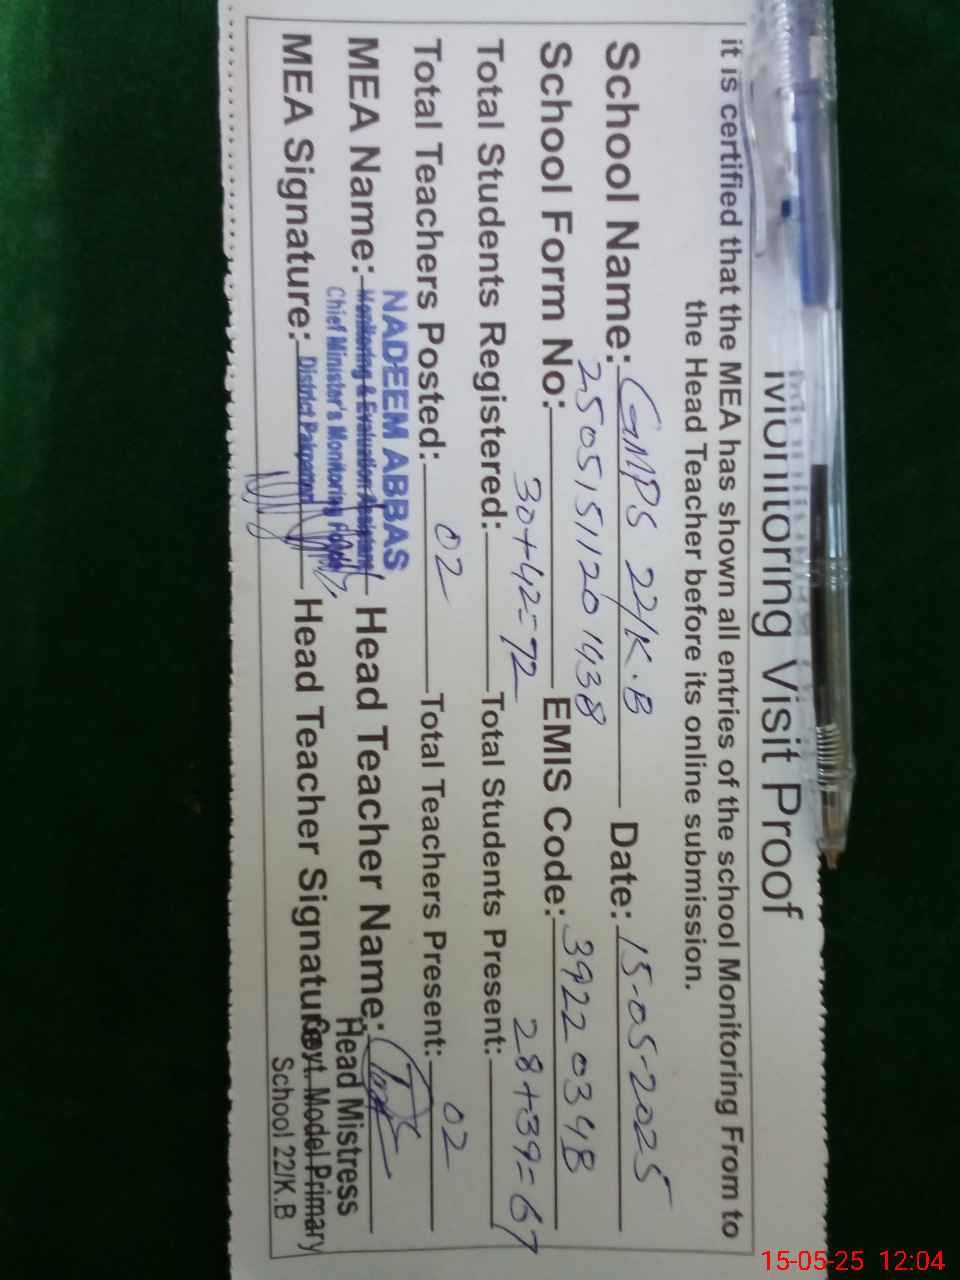 Monitoring Visit Proof
it is certified that the MEA has shown all entries of the school Monitoring From to
the Head Teacher before its online submission.
School Name: GMPS 22/K.B Date: 15-05-2025
School Form No: 25051511201438 EMIS Code: 39220348
Total Students Registered: 30+42=72 Total Students Present: 28+39=67
Total Teachers Posted: 02 Total Teachers Present: 02
NADEEM ABBAS
MEA Name: Monitoring & Evaluation Assistant Head Teacher Name:
Chief Minister's Monitoring Force
Head Mistress
MEA Signature: District Pakpattan Head Teacher Signature: Govt. Model Primary
School 22/K.B
15-05-25 12:04